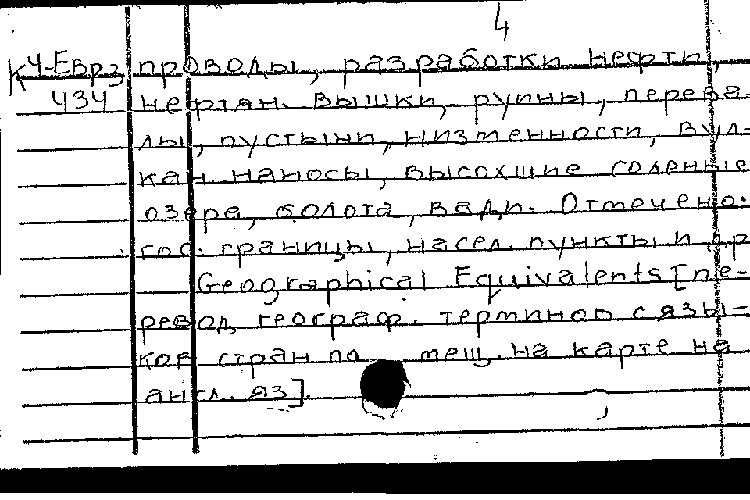 4
К Ч-Евр3 проводы, разработки нефти,
434 нефтян. вышки, руины, перева-
лы, пустыни, низменности, вул-
кан. наносы, высохшие соленые
озера, болота, вади. Отмечено:
гос. границы, насел. пункты и др
Geographical Equivalents [пе-
ревод географ. терминов с язы-
ков стран по мещ. на карте на
англ. яз].